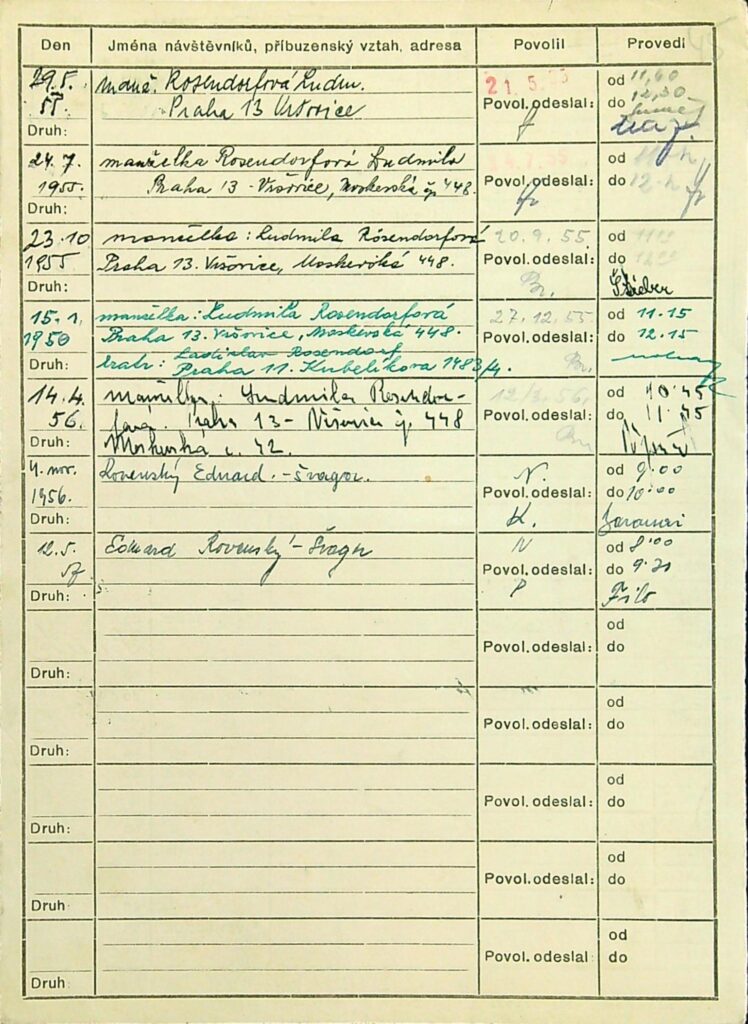 Den Jména návštěvníků, příbuzenský vztah, adresa Povolil Provedl
29.5. manž. Rosendorfová Ludm. 21.5.55 od 11,40
55 Praha 13 Vršovice Povol. odeslal: do 12,30
Druh:
24.7. manželka Rosendorfová Ludmila od 11 h
1955. Praha 13 - Vršovice, Moskevská čp 448. Povol. odeslal: do 12 h
Druh:
23.10 manželka: Ludmila Rosendorfová 20.9.55 od
1955 Praha 13. Vršovice, Moskevská 448. Povol. odeslal: do
Druh: Br.
15.1. manželka: Ludmila Rosendorfová 27.12.55 od 11.15
1950 Praha 13. Vršovice, Moskevská 448. Povol. odeslal: do 12.15
bratr: Ladislav Rosendorf
Druh: Praha 11. Kubelíkova 1483/4. Br.
14.4. manželka: Ludmila Rosendor- 12/3.56. od 10.45
56. fová. Praha 13 - Vršovice čp 448 Povol. odeslal: do 11.45
Druh: Moskevská č. 42. Br
4. nov. Rovenský Eduard. - švagr. N. od 9.00
1956. Povol. odeslal: do 10.00
Druh: K.
12.5. Eduard Rovenský - švagr N od 8.00
57 Povol. odeslal: do 9.20
Druh: P Filo
od
Povol. odeslal: do
Druh:
od
Povol. odeslal: do
Druh:
od
Povol. odeslal: do
Druh:
od
Povol. odeslal: do
Druh:
od
Povol. odeslal: do
Druh: